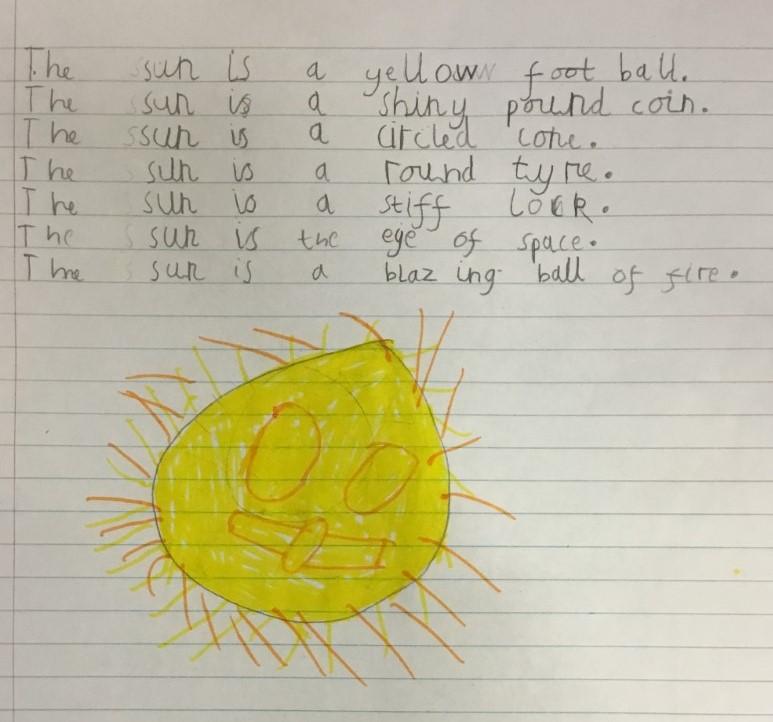 The sun is a yellow foot ball.
The sun is a shiny pound coin.
The sun is a circled cone.
The sun is a round tyre.
The sun is a stiff lock.
The sun is the eye of space.
The sun is a blaz ing ball of fire.